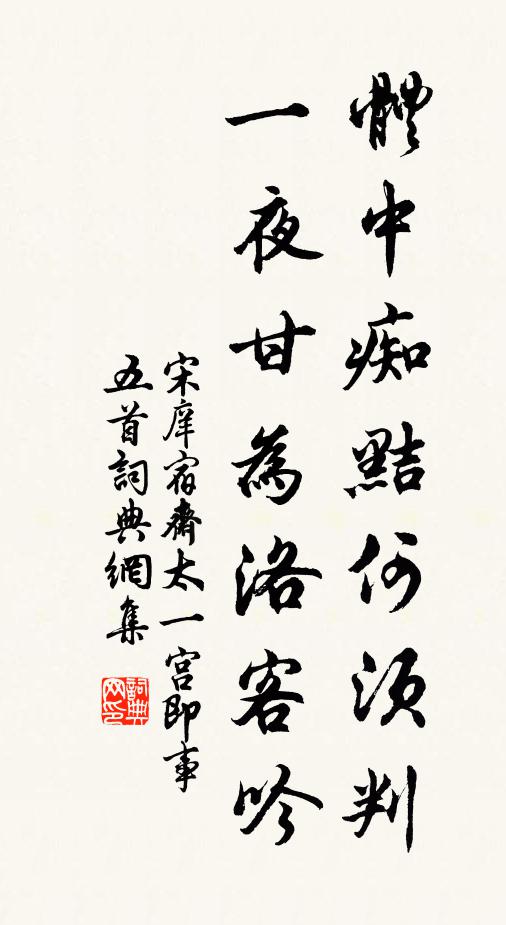 體中痴黠何須判
一夜甘為洛客吟
宋庠宿齋太一宮即事
五首詞典網集
詞典网印